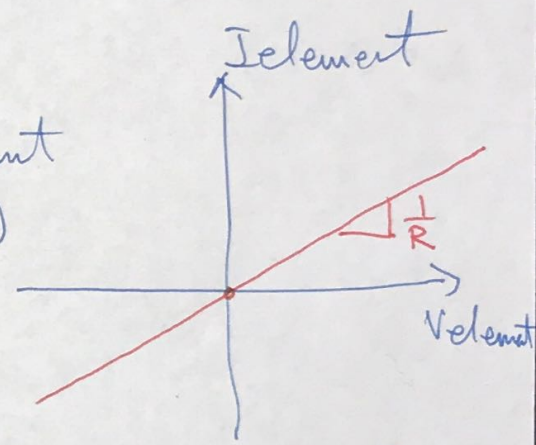 Ielement
nt
)
1
R
Velemt